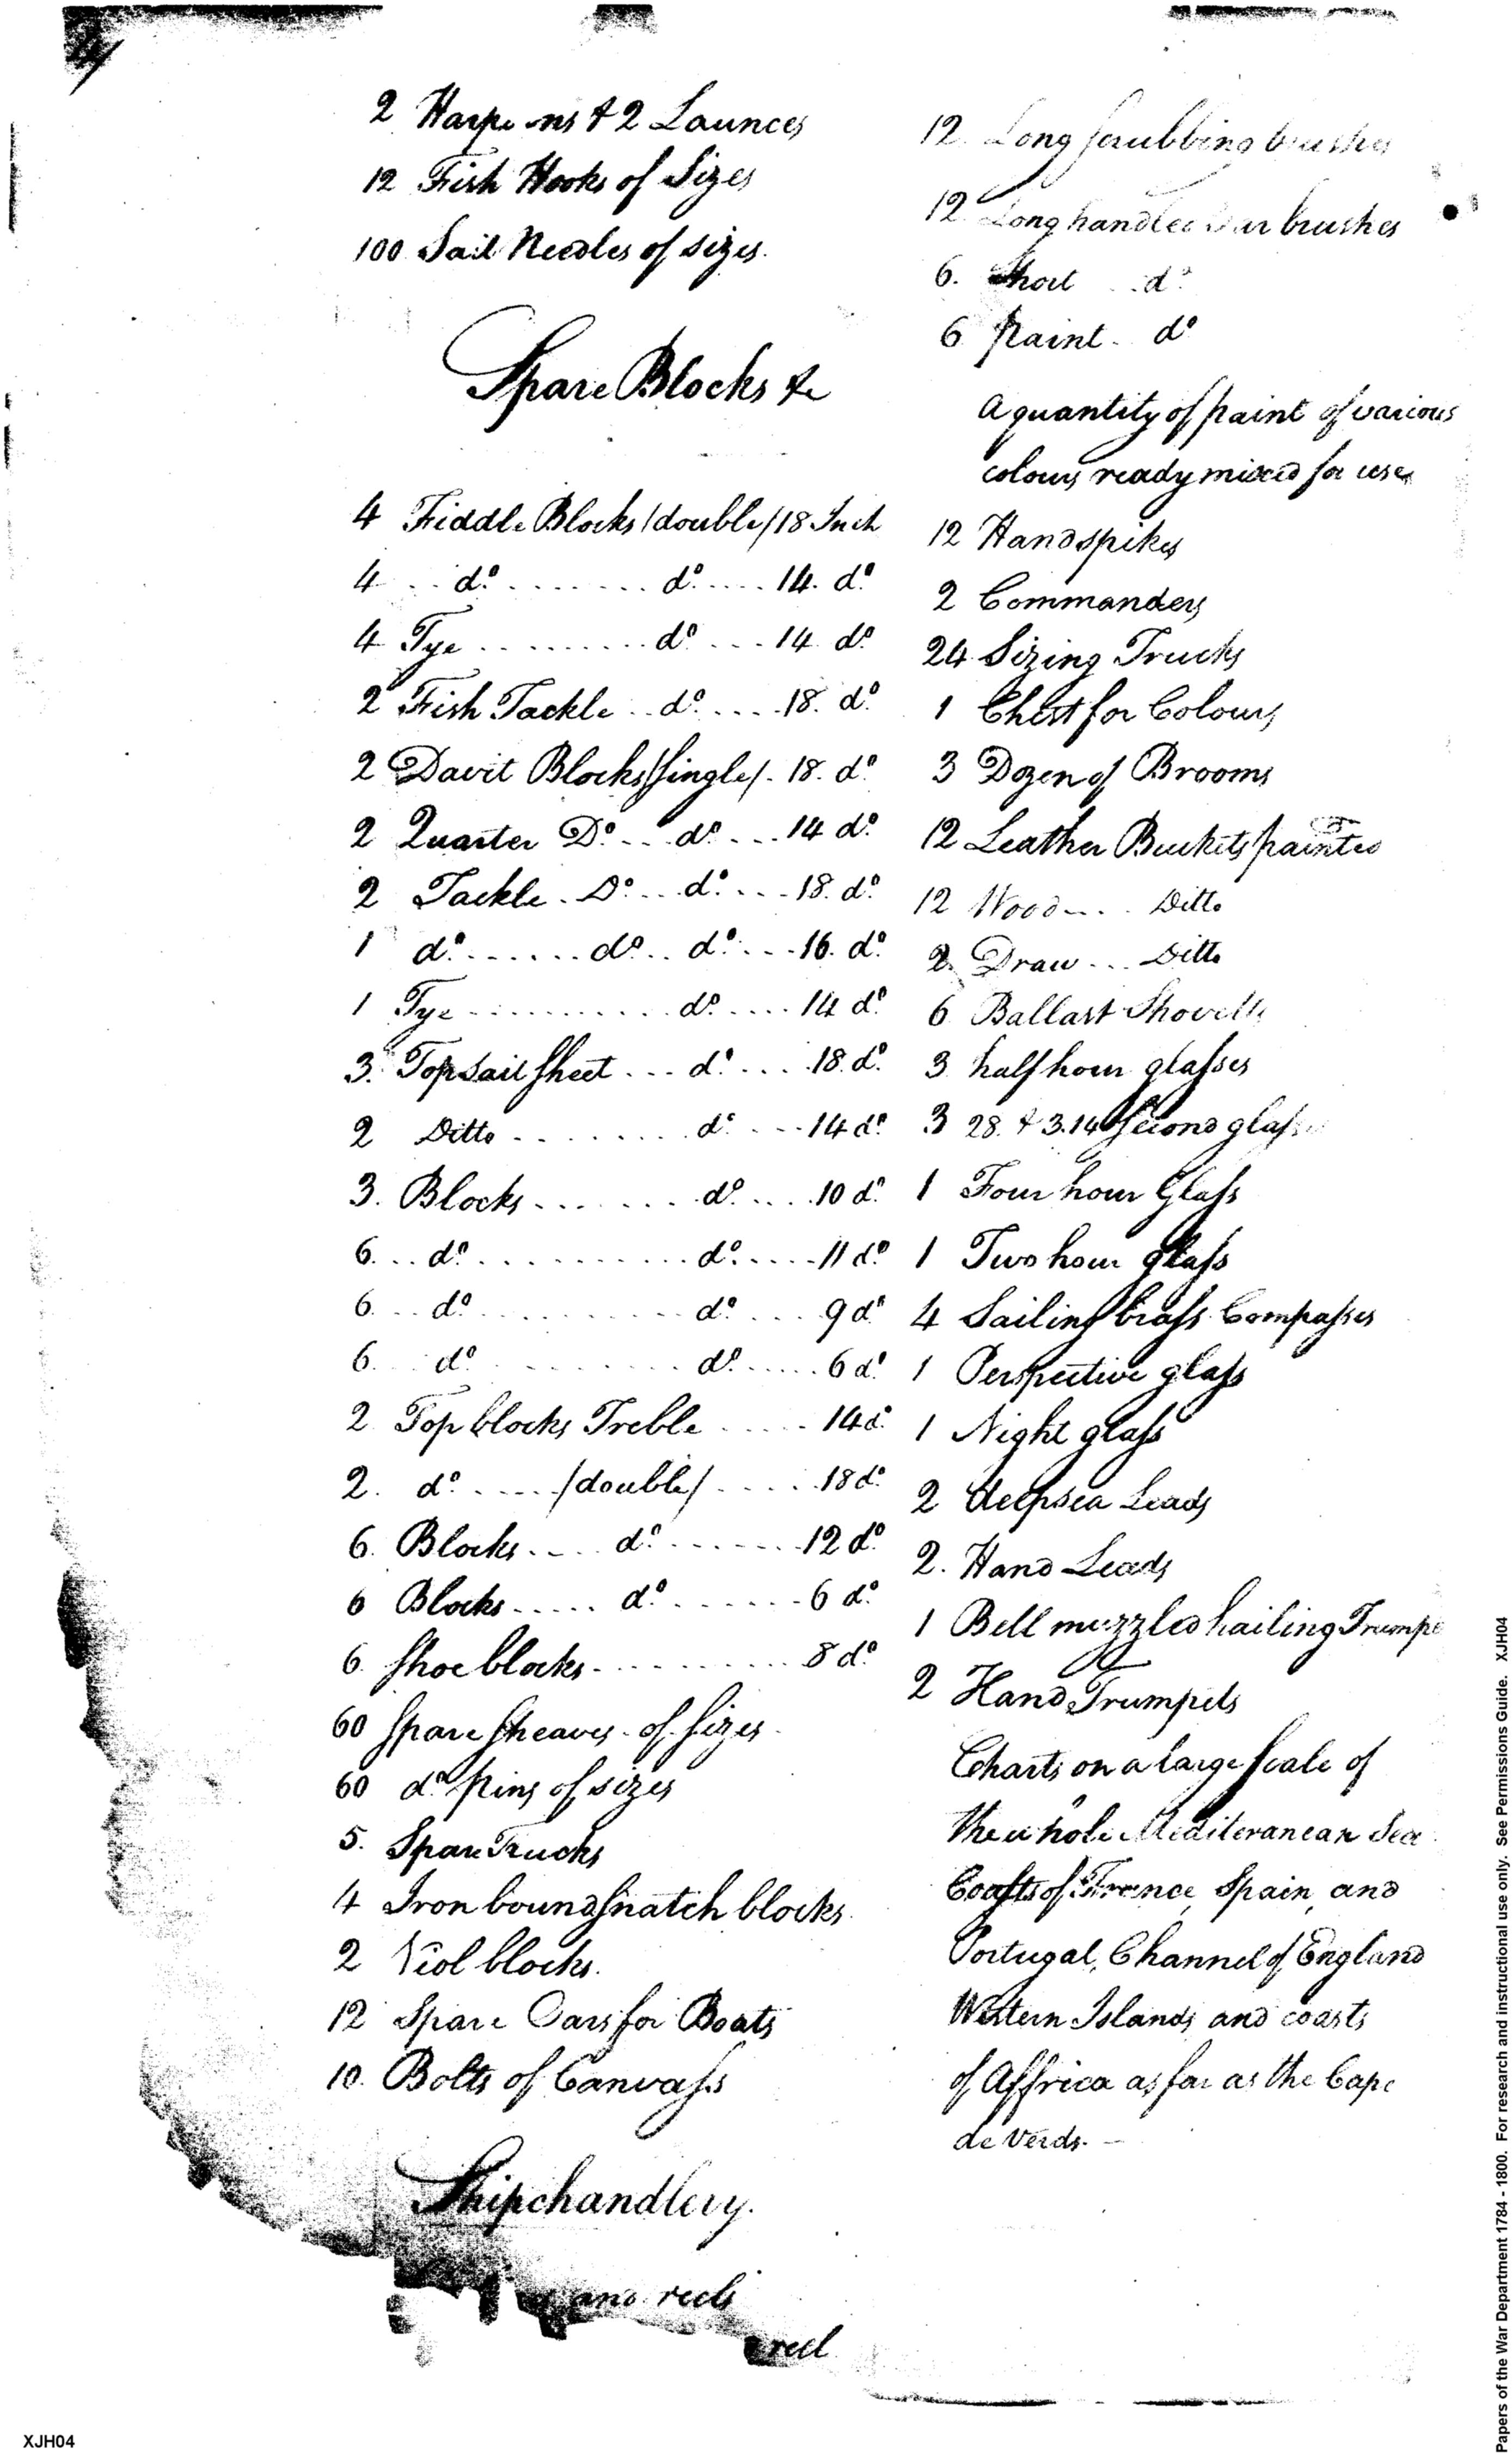 2 Harpoons & 2 Launces
12 Fish Hooks of Sizes
100 Sail Needles of sizes.
Spare Blocks &c
4 Fiddle Blocks /double/ 18 Inch
4 .. do. ........ do. .... 14. do
4 Tye ......... do ... 14 do
2 Fish Tackle .. do .... 18. do
2 Davit Blocks /single/. 18. do
2 Quarter Do ... do ... 14 do
2 Tackle . Do ... do. ... 18. do
1 do. ...... do .. do. ... 16. do
1 Tye .......... do .... 14 do
3. Topsail sheet ... do. .... 18. do
2 Ditto ........ do ... 14 do
3. Blocks ....... do .... 10 do
6... do. .......... do. .... 11 do
6... do. .......... do .... 9 do
6... do ......... do. ..... 6 do
2 Top blocks Treble ..... 14 do
2. do .... /double/ ..... 18 do
6. Blocks .... do ....... 12 do
6 Blocks ..... do ....... 6 do
6 Shoe blocks ......... 8 do
60 Spare Sheaves - of sizes
60 do pins of sizes
5. Spare Trucks
4 Iron bound snatch blocks
2 Viol blocks.
12 Spare Oars for Boats
10. Bolts of Canvass
Shipchandlery.
and reels
reel
12 Long scrubbing brushes
12 Long handled tar brushes
6. Short do
6 paint - do
A quantity of paint of various
colours ready mixed for use
12 Handspikes
2 Commanders
24 Sizing Trucks
1 Chest for Colours
3 Dozen of Brooms
12 Leather Buckets painted
12 Wood ... Ditto
2 Draw ... Ditto
6 Ballast Shovells
3 half hour glasses
3 28. & 3.14 Second glasses
1 Four hour Glass
1 Two hour glass
4 Sailing brass Compasses
1 Perspective glass
1 Night glass
2 deepsea Leads
2. Hand Leads
1 Bell muzzled hailing Trumpe
2 Hand Trumpets
Charts on a large scale of
the whole Mediteranean Sea
Coasts of France, Spain, and
Portugal, Channel of England
Western Islands and coasts
of Affrica as far as the Cape
de Verds. -
Papers of the War Department 1784 - 1800. For research and instructional use only. See Permissions Guide. XJH04
XJH04